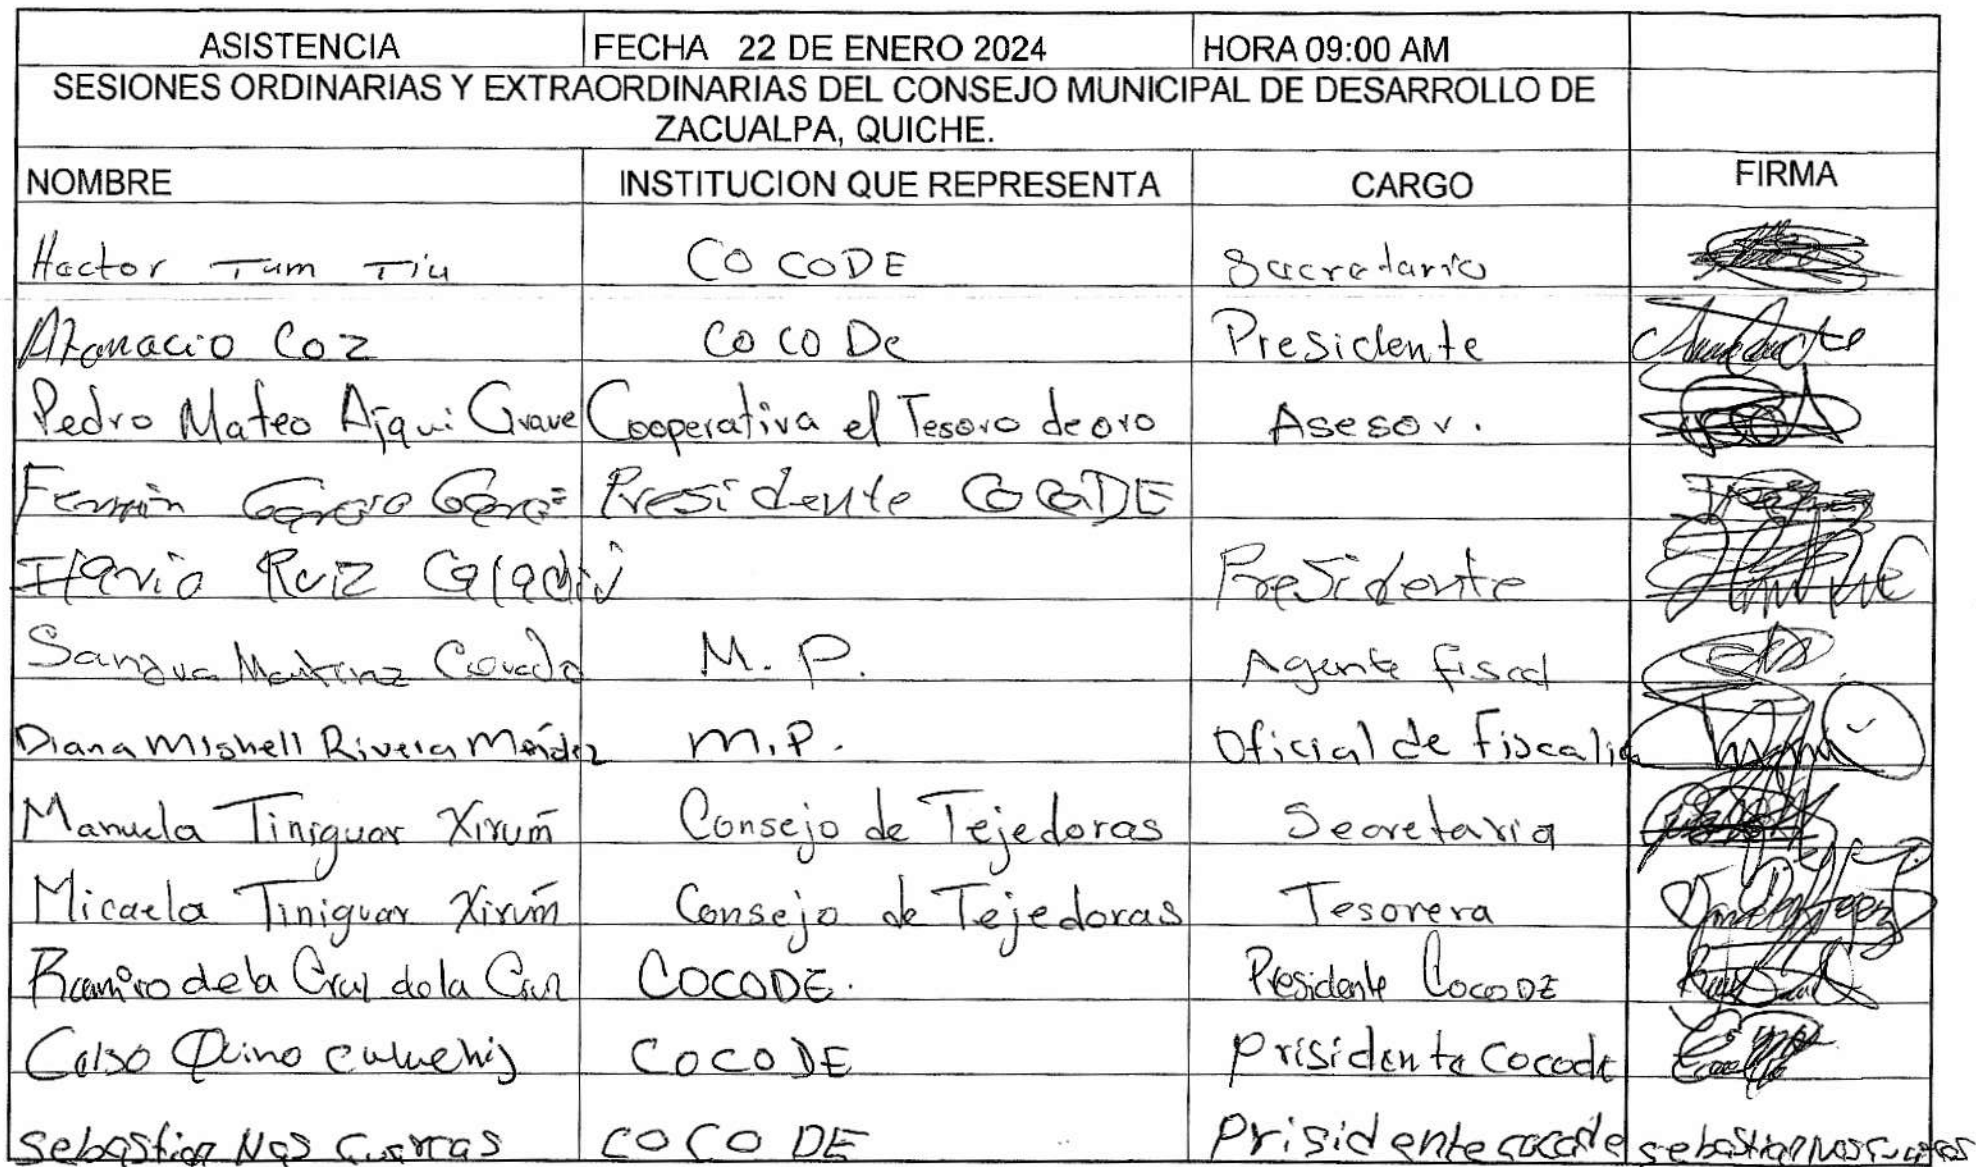 ASISTENCIA FECHA 22 DE ENERO 2024 HORA 09:00 AM
SESIONES ORDINARIAS Y EXTRAORDINARIAS DEL CONSEJO MUNICIPAL DE DESARROLLO DE
ZACUALPA, QUICHE.
NOMBRE INSTITUCION QUE REPRESENTA CARGO FIRMA
Hector Tum Tiu COCODE Sacretario
Atanacio Coz CoCoDe Presidente
Pedro Mateo Ajqui Grave Cooperativa el Tesoro de oro Asesor.
Fermin Presidente COCODE
Ruiz Presidente
Sandra M. P. Agente fiscal
Diana Mishell Rivera Méndez M.P. Oficial de Fiscalia
Manuela Tiniguar Xirum Consejo de Tejedoras Secretaria
Micaela Tiniguar Xirum Consejo de Tejedoras Tesorera
Ramiro de la Cruz de la Cruz COCODE. Presidente CocoDE
COCODE Prisidente Cocode
sebastian COCODE Prisidente cocode sebastian